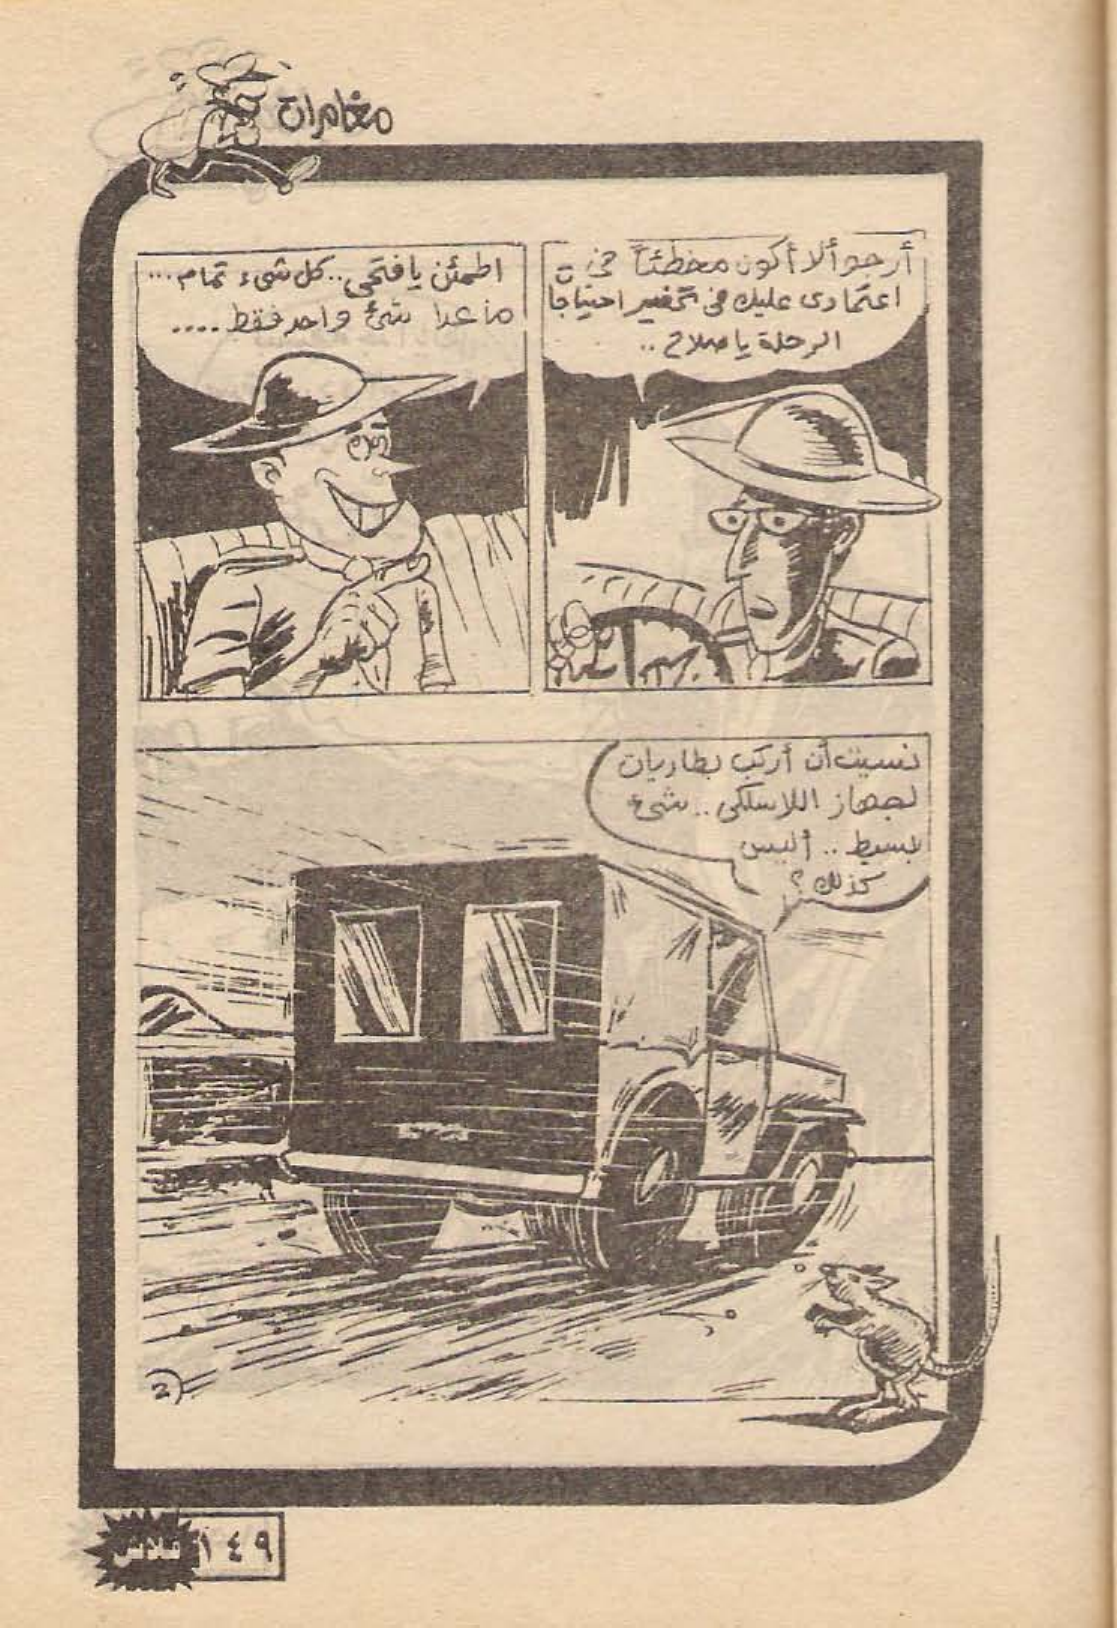 مغامرات
أرجو ألا أكون مخطئاً في
اعتمادى عليك فى تحضير احتياجات
الرحلة يا صلاح ..
اطمئن يا فتحى .. كل شىء تمام ...
ما عدا شئ واحد فقط ....
نسيت أن أركب بطاريات
لجهاز اللاسلكى .. شئ
بسيط .. أليس
كذلك ؟
2
فلاش ١٤٩